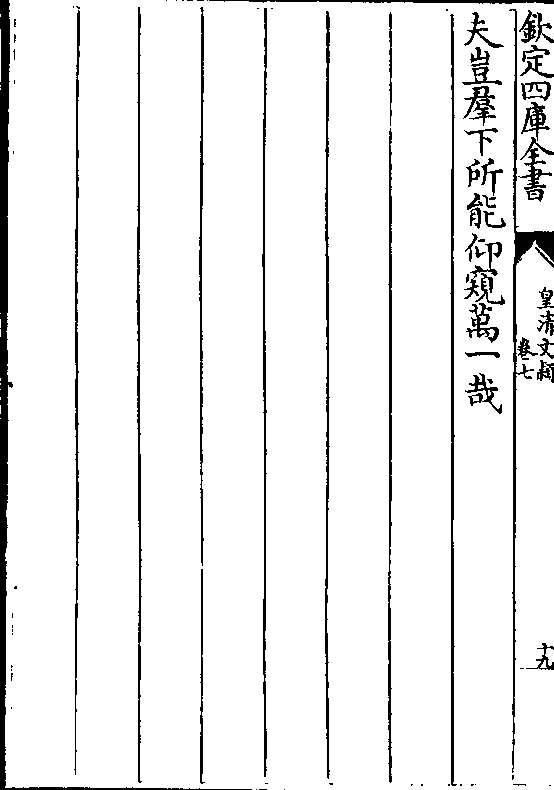 欽定四庫全書
皇清文穎
卷七
十九
夫豈羣下所能仰窺萬一哉